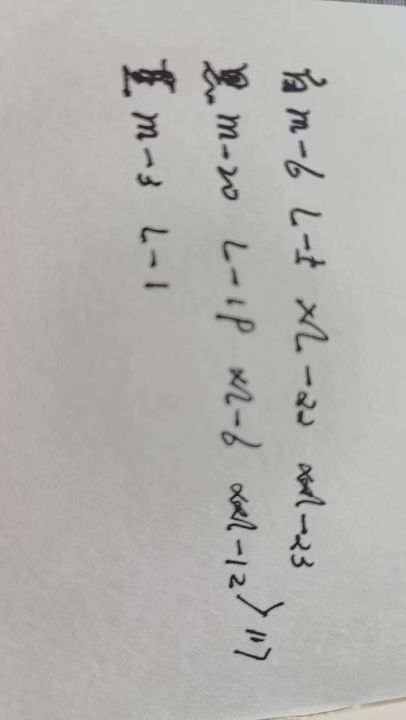 白 m-6 L-5 XL-22 XXL-23
黑 m-20 L-19 XL-6 XXL-12 } 117
m-3 L-1